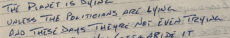 THE PLANET IS DYING
UNLESS THE POLITICIANS ARE LYING
AND THESE DAYS THEY'RE NOT EVEN TRYING
IT